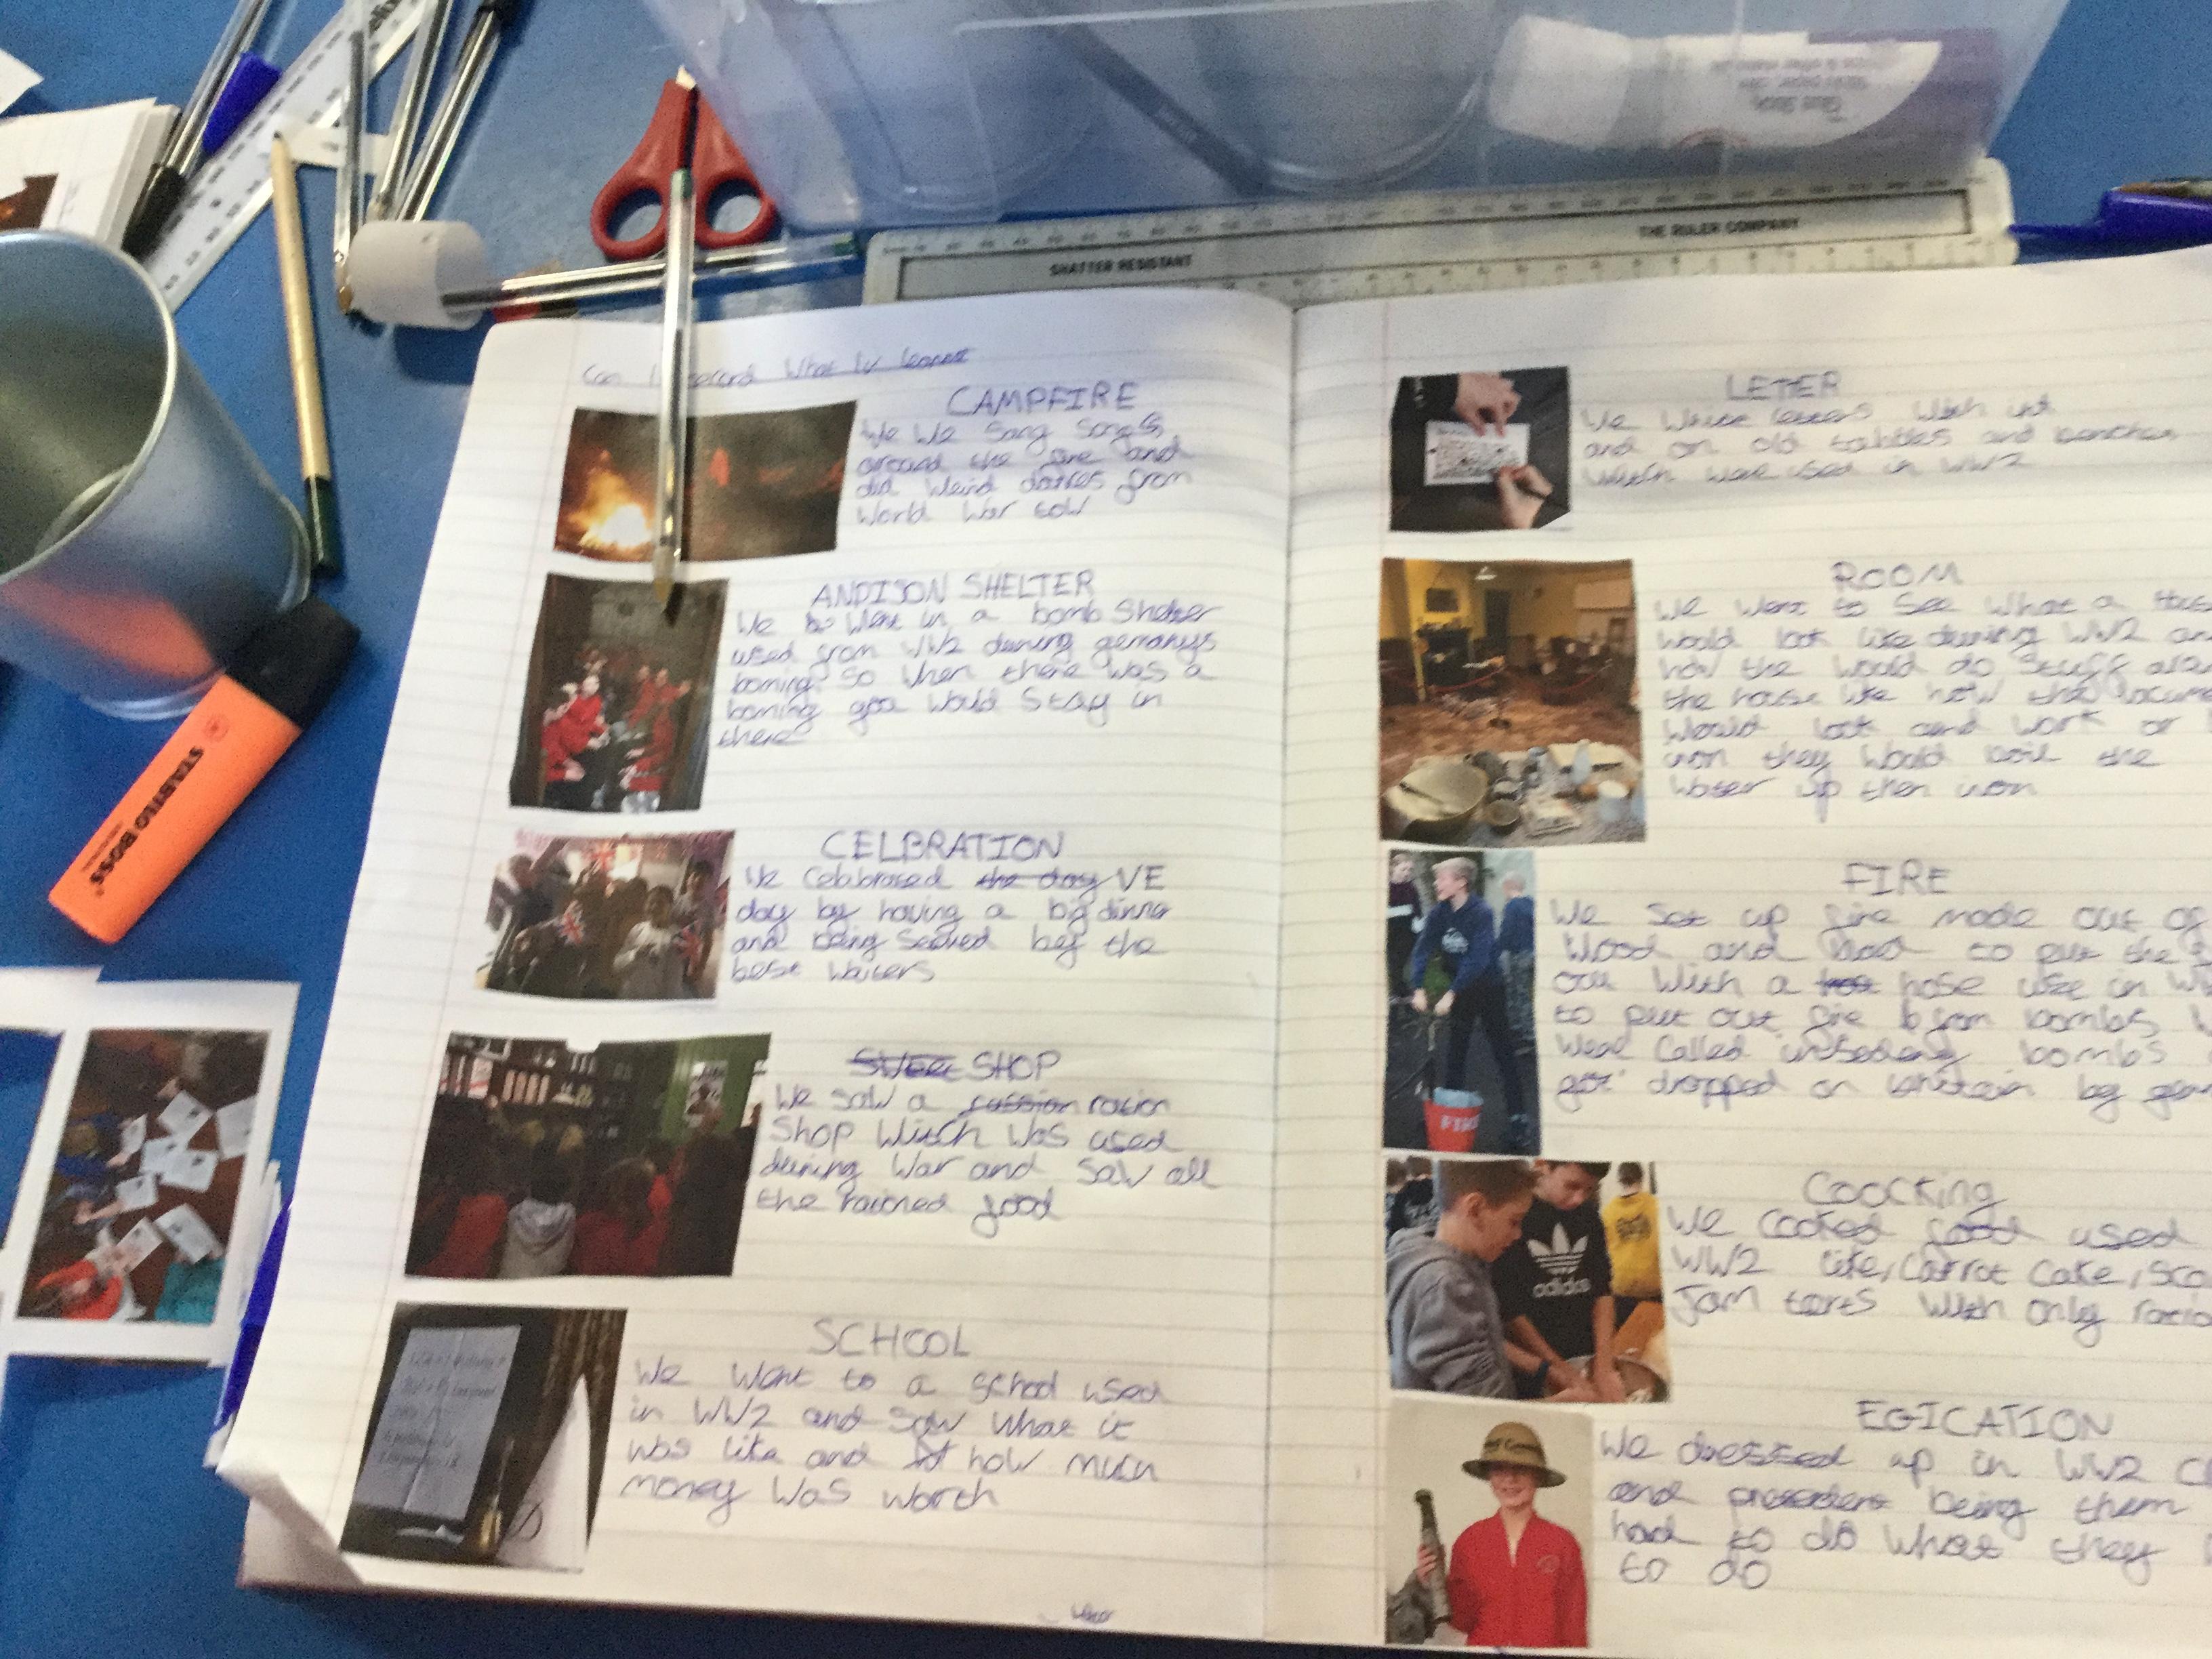 SHATTER RESISTANT
THE RULER COMPANY
Glue Stick
STABILO BOSS
Can I record What Iv learnt
CAMPFIRE
We We Sang Songs
around the fire and
did Weird dances from
World War tow
ANDISON SHELTER
We be Went in a bomb Shelter
used from WW2 dewring germanys
boming. So When there Was a
boming you Would Stay in
there
CELBRATION
We Celebrated the day VE
day by having a big dinner
and being Served by the
best Waiters
SWEET SHOP
We Saw a russion ration
Shop Witch Was used
dewring War and Saw all
the rationed food
SCHOOL
We Went to a School used
in WW2 and Saw What it
Was like and how much
money Was worth
LETTER
We Write letters With ink
and on old tabbles and benches
Witch Were used in WW2
ROOM
We Went to See What a
Would look like dewring WW2
how the Would do Stuff
the house like how the
Would look and work or
iron they Would boil the
Water up then iron
FIRE
We Set up fire made out of
Wood and had to put the
out With a hose use in
to put out fire from bombs
Were Called bombs
got dropped on by
FIRE
COOCKING
We Cooked food used
WW2 like, Carrot Cake,
Jam tarts With only
adidas
EGICATION
We dressed up in WW2
and being them
had to do What they
to do